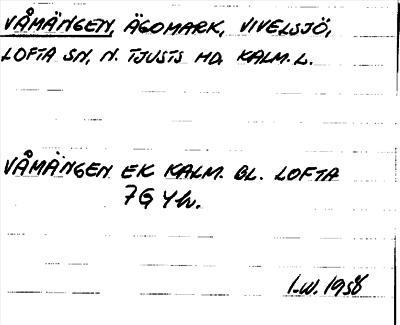 VÅMÄNGEN, ÄGOMARK, VIVELSJÖ,
LOFTA SN, N. TJUSTS HD. KALM. L.
VÅMÄNGEN EK KALM. BL. LOFTA
7G 4h.
I.W. 1958